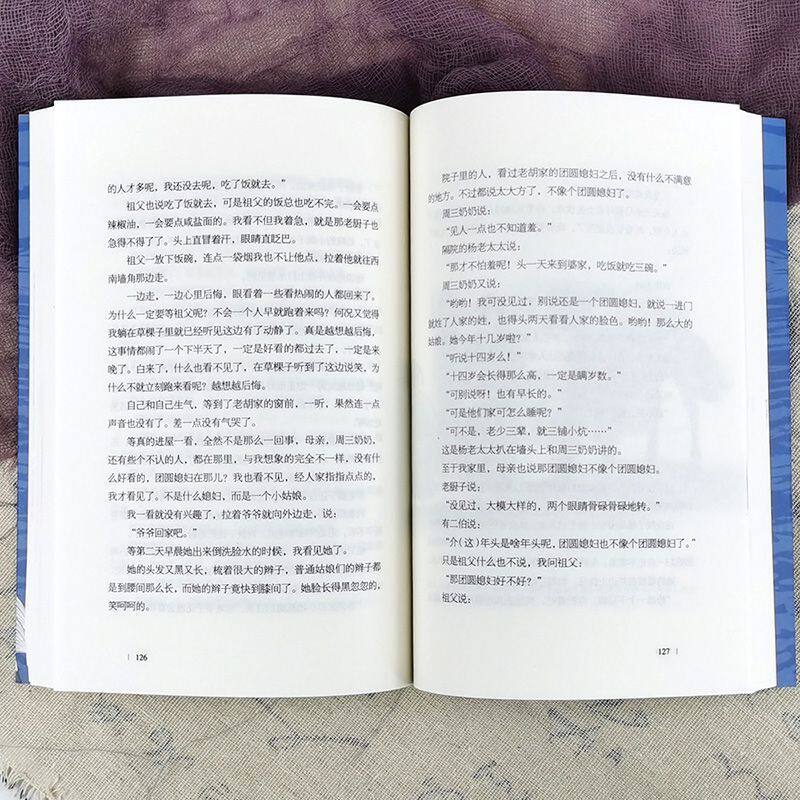 的人才多呢，我还没去呢，吃了饭就去。”
祖父也说吃了饭就去，可是祖父的饭总也吃不完。一会要点
辣椒油，一会要点咸盐面的。我看不但我着急，就是那老厨子也
急得不得了了。头上直冒着汗，眼睛直眨巴。
祖父一放下饭碗，连点一袋烟我也不让他点，拉着他就往西
南墙角那边走。
一边走，一边心里后悔，眼看着一些看热闹的人都回来了。
为什么一定要等祖父呢？不会一个人早就跑着来吗？何况又觉得
我躺在草棵子里就已经听见这边有了动静了。真是越想越后悔，
这事情都闹了一个下半天了，一定是好看的都过去了，一定是来
晚了。白来了，什么也看不见了，在草棵子听到了这边说笑，为
什么不就立刻跑来看呢？越想越后悔。
自己和自己生气，等到了老胡家的窗前，一听，果然连一点
声音也没有了。差一点没有气哭了。
等真的进屋一看，全然不是那么一回事，母亲，周三奶奶，
还有些个不认的人，都在那里，与我想象的完全不一样，没有什
么好看的，团圆媳妇在那儿？我也看不见，经人家指指点点的，
我才看见了。不是什么媳妇，而是一个小姑娘。
我一看就没有兴趣了，拉着爷爷就向外边走，说：
“爷爷回家吧。”
等第二天早晨她出来倒洗脸水的时候，我看见她了。
她的头发又黑又长，梳着很大的辫子，普通姑娘们的辫子都
是到腰间那么长，而她的辫子竟快到膝间了。她脸长得黑忽忽的，
笑呵呵的。
126
院子里的人，看过老胡家的团圆媳妇之后，没有什么不满意
的地方。不过都说太大方了，不像个团圆媳妇了。
周三奶奶说：
“见人一点也不知道羞。”
隔院的杨老太太说：
“那才不怕羞呢！头一天来到婆家，吃饭就吃三碗。”
周三奶奶又说：
“哟哟！我可没见过，别说还是一个团圆媳妇，就说一进门
就姓了人家的姓，也得头两天看看人家的脸色。哟哟！那么大的
姑娘。她今年十几岁啦？”
“听说十四岁么！”
“十四岁会长得那么高，一定是瞒岁数。”
“可别说呀！也有早长的。”
“可是他们家可怎么睡呢？”
“可不是，老少三辈，就三铺小炕……”
这是杨老太太扒在墙头上和周三奶奶讲的。
至于我家里，母亲也说那团圆媳妇不像个团圆媳妇。
老厨子说：
“没见过，大模大样的，两个眼睛骨碌骨碌地转。”
有二伯说：
“介（这）年头是啥年头呢，团圆媳妇也不像个团圆媳妇了。”
只是祖父什么也不说，我问祖父：
“那团圆媳妇好不好？”
祖父说：
127